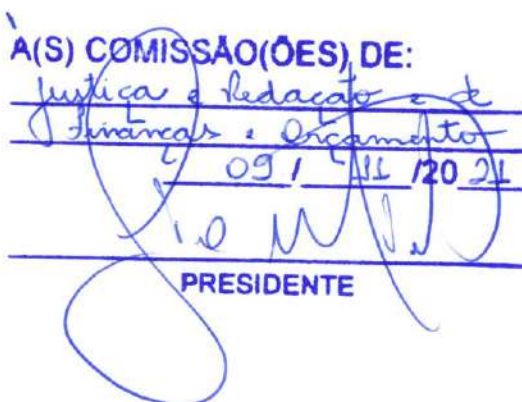 À(S) COMISSÃO(ÕES) DE:
Justiça e Redação e de
Finanças e Orçamento
09 / 11 /20 21
PRESIDENTE